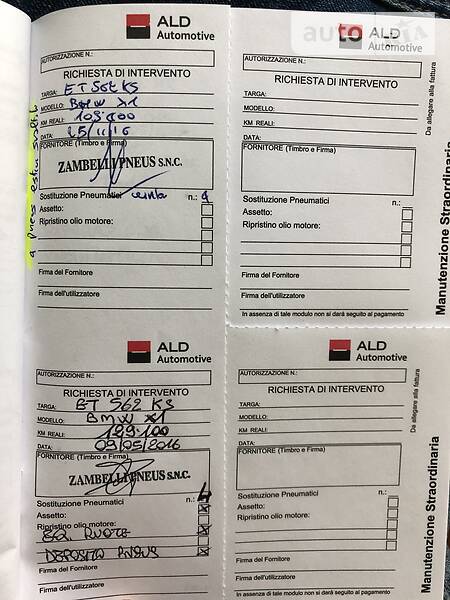 ALD
Automotive
AUTORIZZAZIONE N.:
RICHIESTA DI INTERVENTO
TARGA: ET 562 KS
MODELLO: BMW X1
KM REALI:
DATA: 25/11/16
FORNITORE (Timbro e Firma)
ZAMBELLI PNEUS S.N.C.
Sostituzione Pneumatici n.: 4
Assetto:
Ripristino olio motore:
Firma del Fornitore
Firma dell'utilizzatore
ALD
Automotive
AUTORIZZAZIONE N.:
RICHIESTA DI INTERVENTO
TARGA:
MODELLO:
KM REALI:
DATA:
FORNITORE (Timbro e Firma)
Sostituzione Pneumatici n.:
Assetto:
Ripristino olio motore:
Firma del Fornitore
Firma dell'utilizzatore
In assenza di tale modulo non si darà seguito al pagamento
Da allegare alla fattura
Manutenzione Straordinaria
ALD
Automotive
AUTORIZZAZIONE N.:
RICHIESTA DI INTERVENTO
TARGA: ET 562 KS
MODELLO: BMW X1
KM REALI: 199.100
DATA: 09/05/2016
FORNITORE (Timbro e Firma)
ZAMBELLI PNEUS S.N.C.
Sostituzione Pneumatici n.: 4
Assetto: X
Ripristino olio motore:
EQ. RUOTE X
DEPOSITO PNEUS X
Firma del Fornitore
Firma dell'utilizzatore
ALD
Automotive
AUTORIZZAZIONE N.:
RICHIESTA DI INTERVENTO
TARGA:
MODELLO:
KM REALI:
DATA:
FORNITORE (Timbro e Firma)
Sostituzione Pneumatici n.:
Assetto:
Ripristino olio motore:
Firma del Fornitore
Firma dell'utilizzatore
In assenza di tale modulo non si darà seguito al pagamento
Da allegare alla fattura
Manutenzione Straordinaria